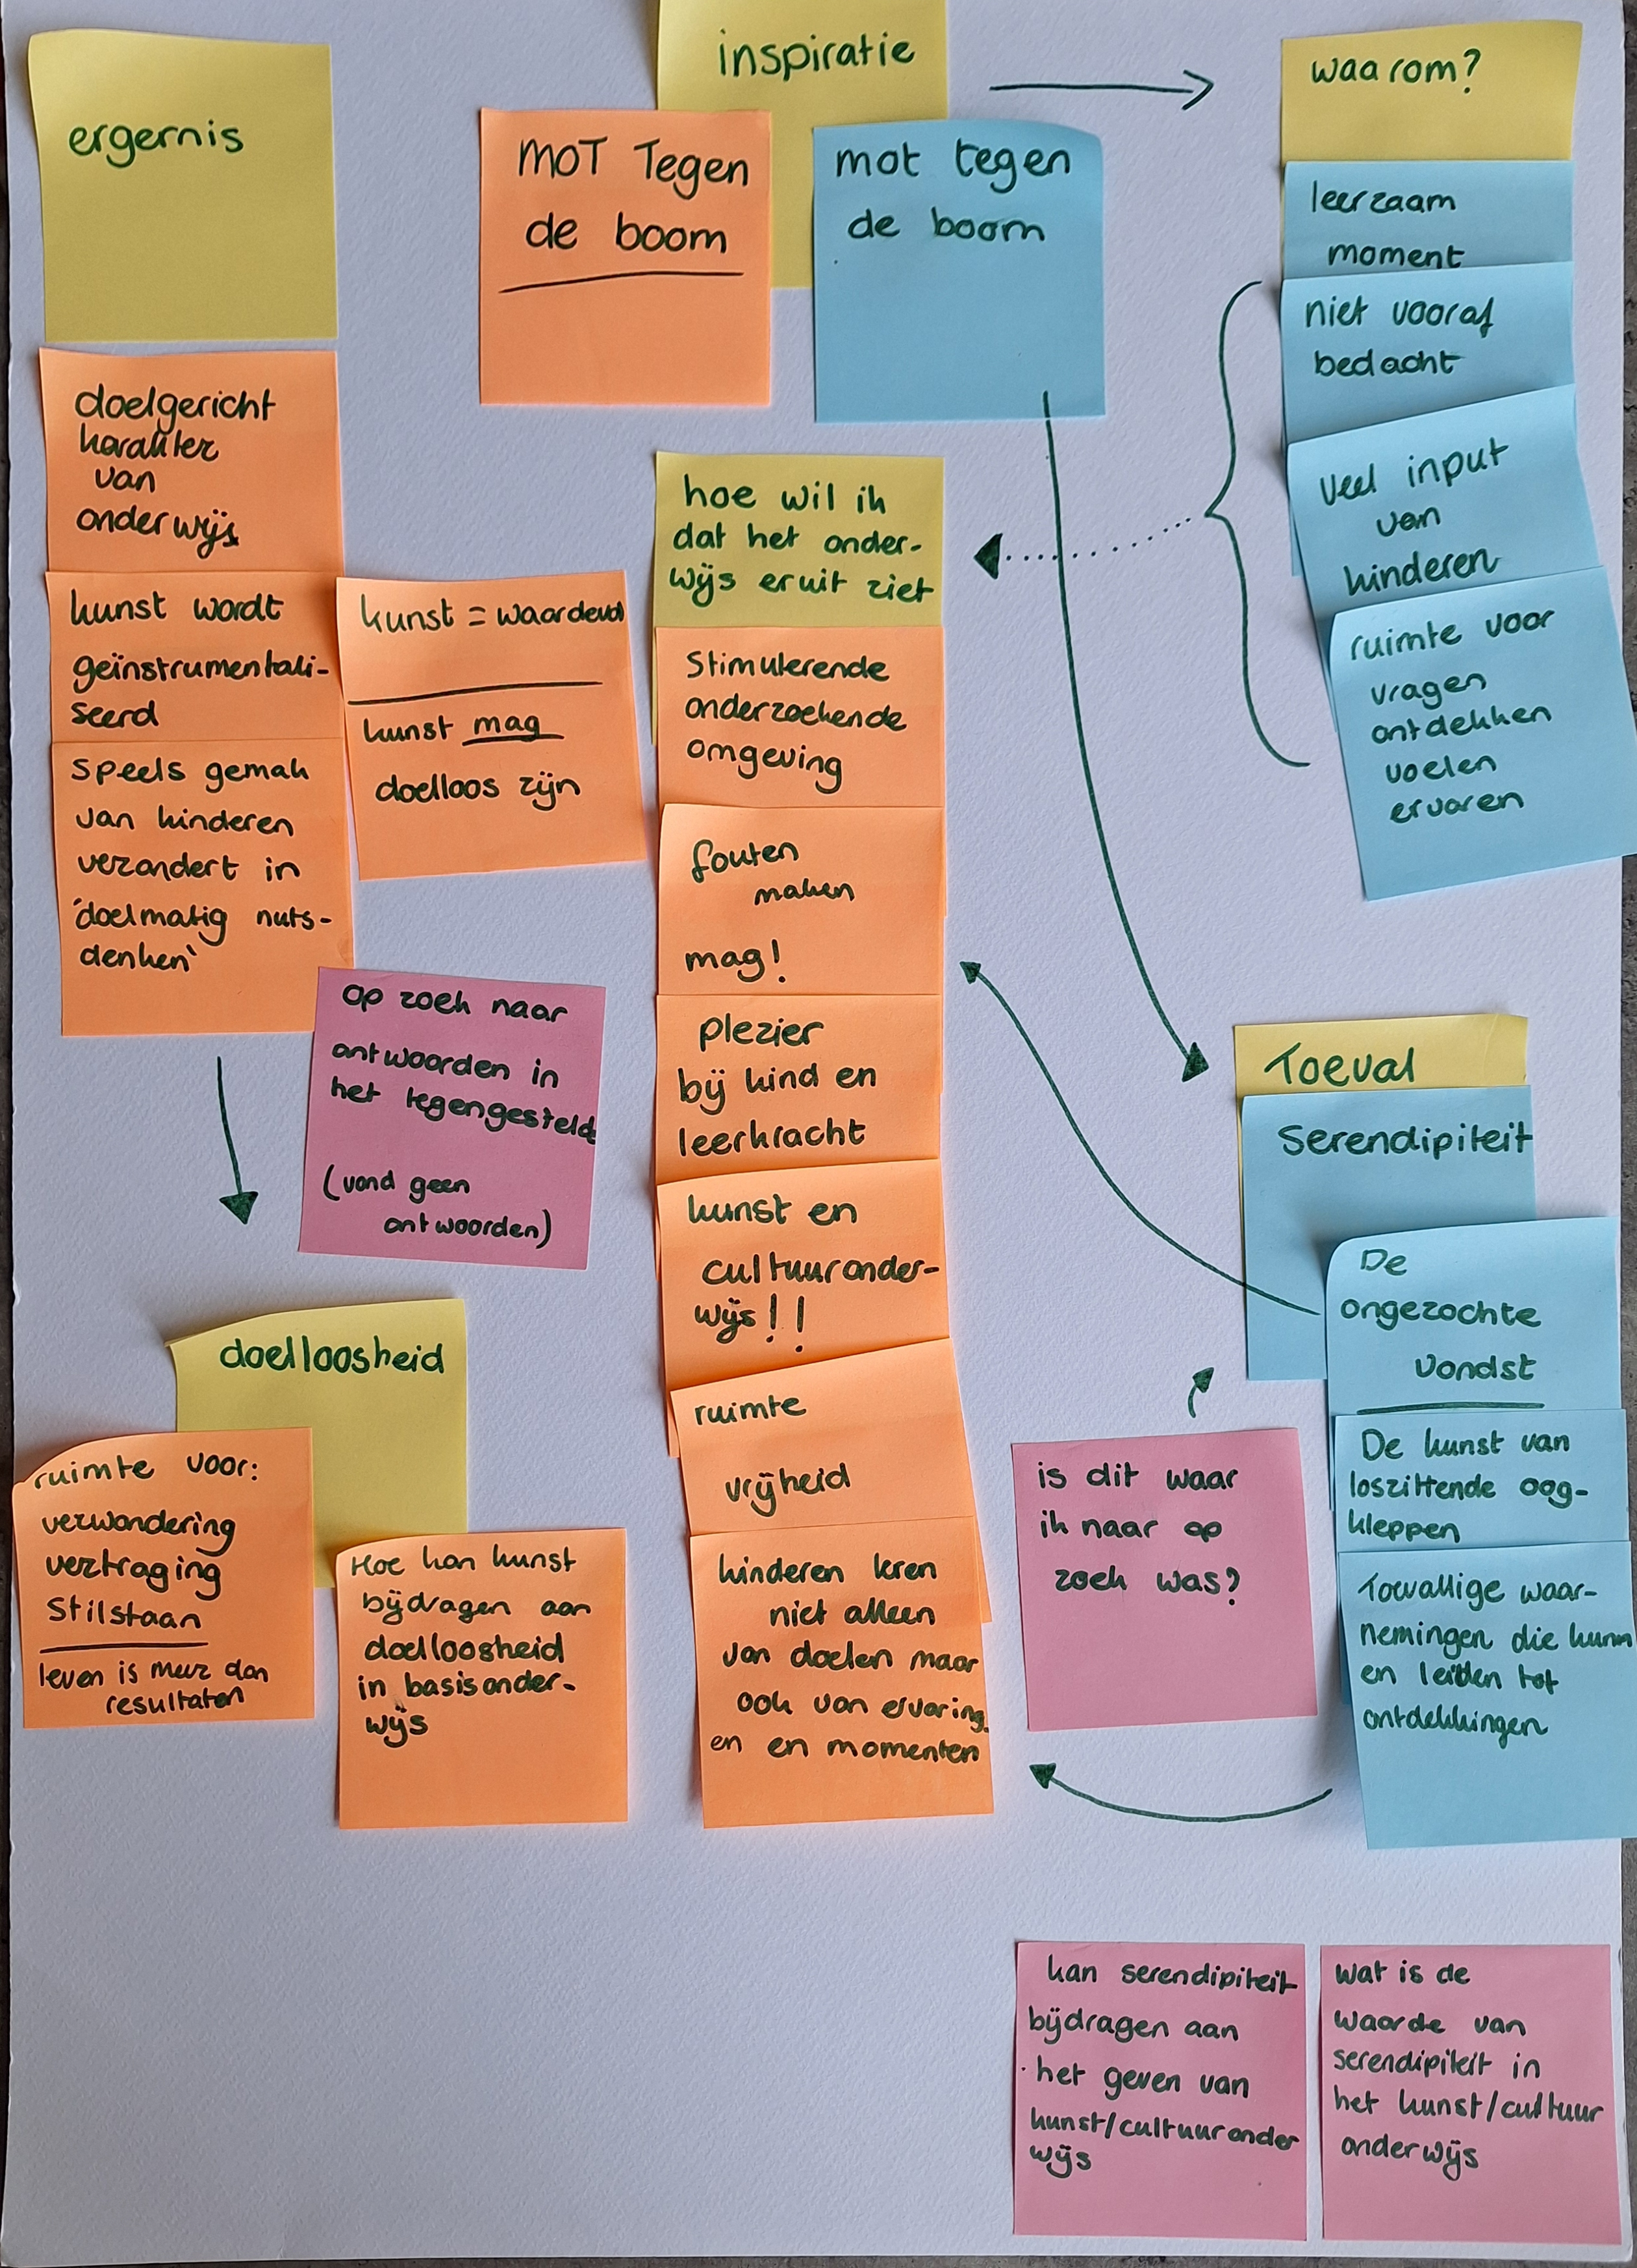 ergernis
doelgericht
karakter
van
onderwijs
kunst wordt
geïnstrumentali-
seerd
speels gemak
van kinderen
verandert in
'doelmatig nuts-
denken'
kunst = waardevol
kunst mag
doelloos zijn
op zoek naar
antwoorden in
het tegengestelde
(vond geen
antwoorden)
doelloosheid
ruimte voor:
verwondering
vertraging
stilstaan
leven is meer dan
resultaten
Hoe kan kunst
bijdragen aan
doelloosheid
in basisonder-
wijs
inspiratie
MOT Tegen
de boom
mot tegen
de boom
hoe wil ik
dat het onder-
wijs eruit ziet
Stimulerende
onderzoekende
omgeving
fouten
maken
mag!
plezier
bij kind en
leerkracht
kunst en
cultuuronder-
wijs!!
ruimte
vrijheid
kinderen leren
niet alleen
van doelen maar
ook van ervaring
en en momenten
waarom?
leerzaam
moment
niet vooraf
bedacht
veel input
van
kinderen
ruimte voor
vragen
ontdekken
voelen
ervaren
Toeval
Serendipiteit
De
ongezochte
vondst
De kunst van
loszittende oog-
kleppen
Toevallige waar-
nemingen die kunn
en leiden tot
ontdekkingen
is dit waar
ik naar op
zoek was?
kan serendipiteit
bijdragen aan
het geven van
kunst/cultuuronder
wijs
wat is de
waarde van
serendipiteit in
het kunst/cultuur
onderwijs